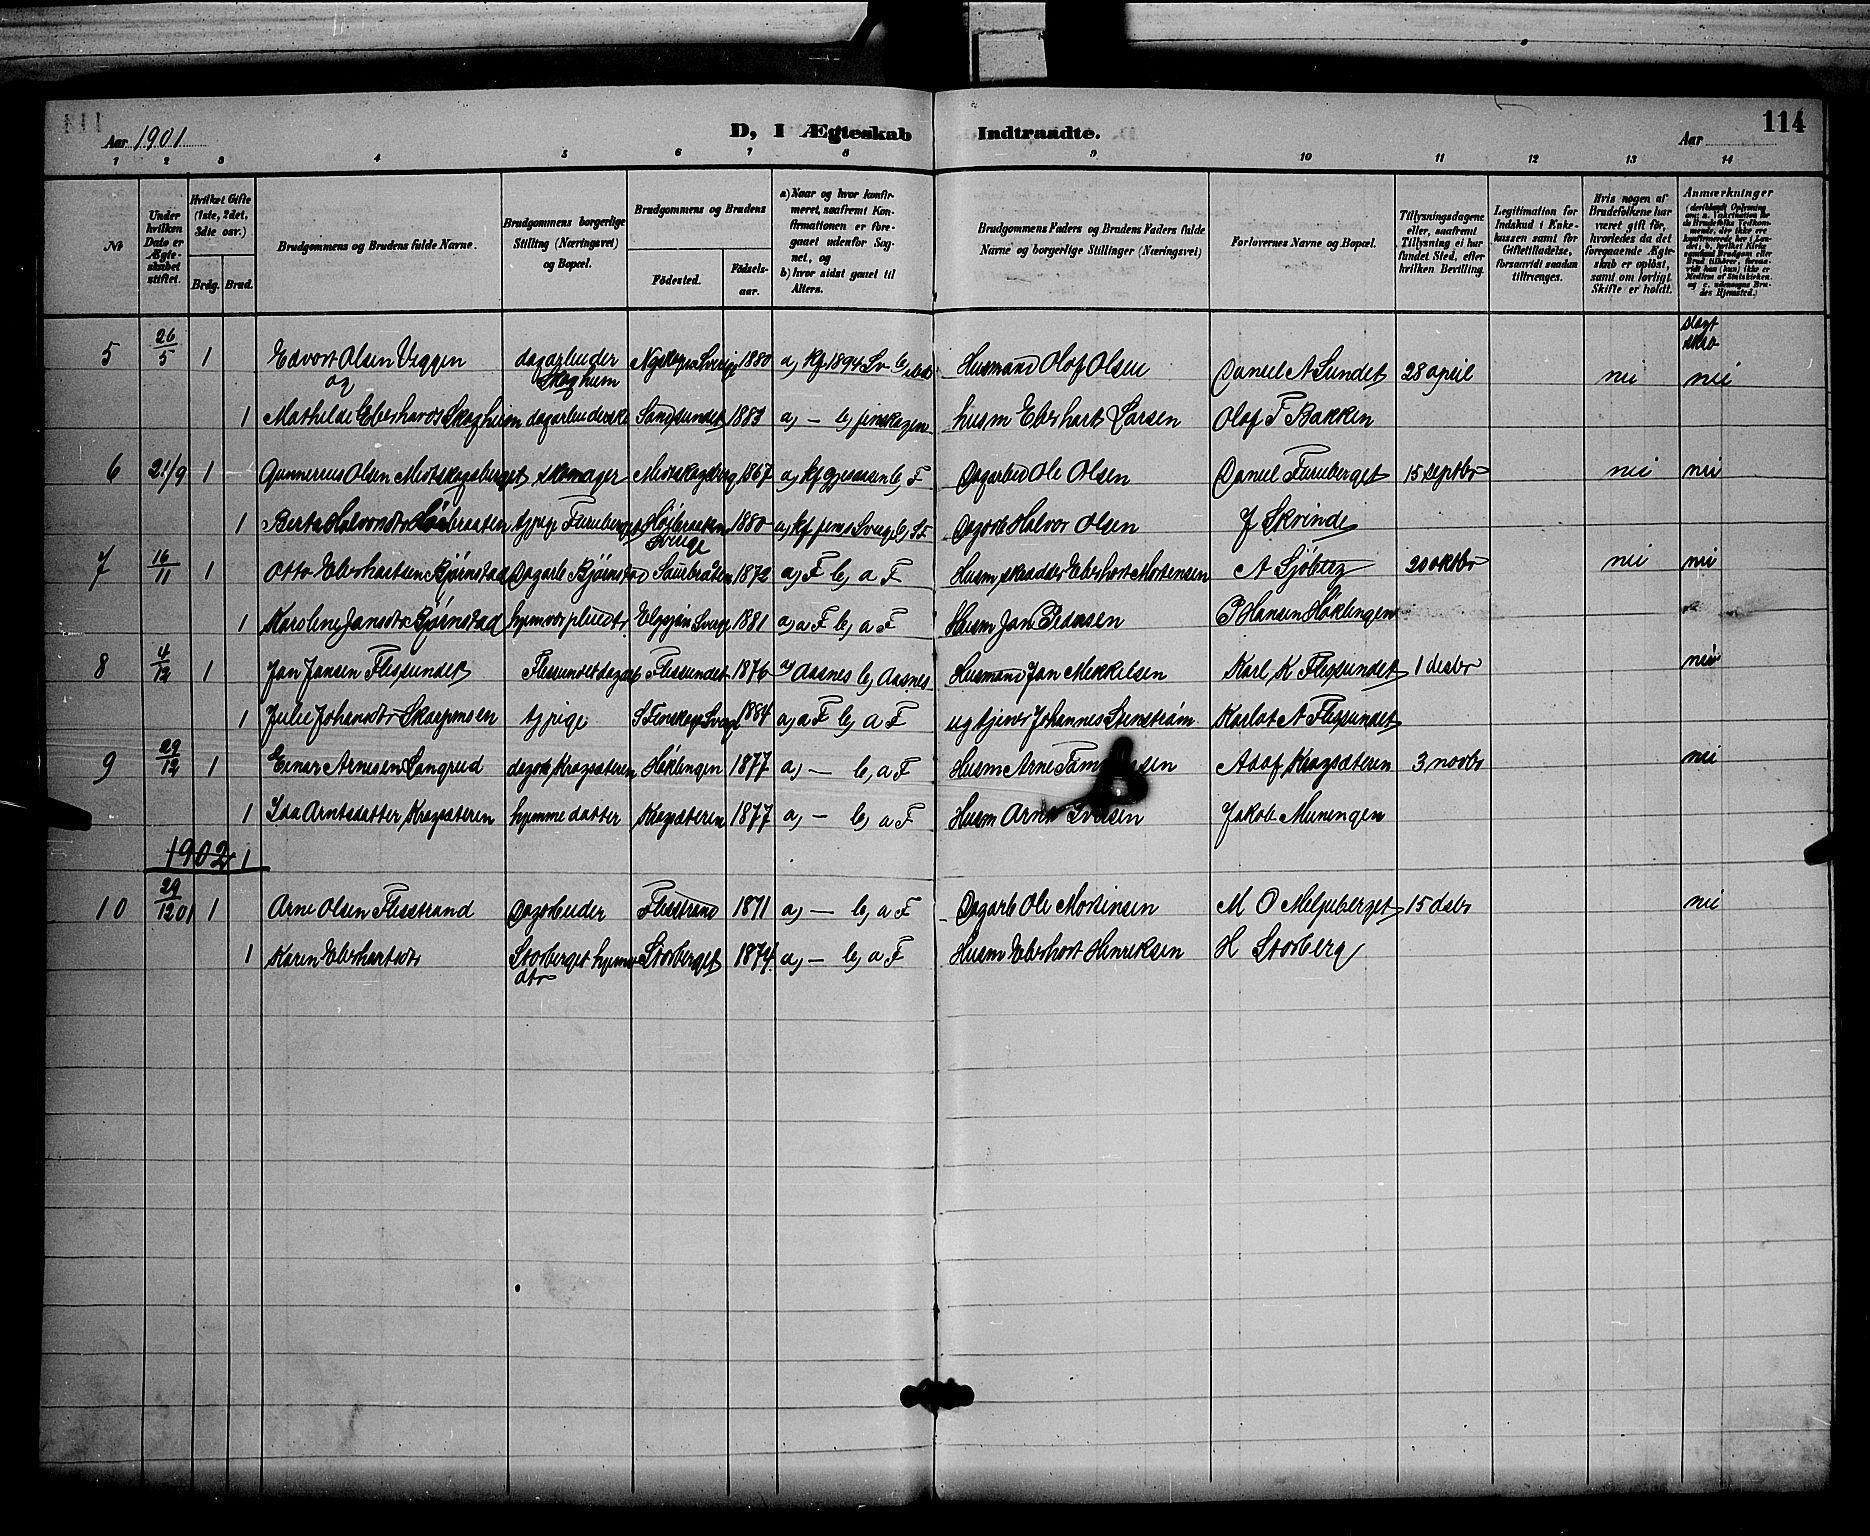 114
Aar 1901
D, I Ægteskab Indtraadte.
Aar
1 2 3 4 5 6 7 8 9 10 11 12 13 14
No
Under hvilken Dato er Ægteskabet stiftet.
Hvilket Gifte (1ste, 2det, 3die osv.)
Brdg. Brud.
Brudgommens og Brudens fulde Navne.
Brudgommens borgerlige Stilling (Næringsvei) og Bopæl.
Brudgommens og Brudens
Fødested.
Fødselsaar.
a) Naar og hvor konfirmeret, saafremt Konfirmationen er foregaaet udenfor Sognet, og
b) hvor sidst gaaet til Alters.
Brudgommens Faders og Brudens Faders fulde Navne og borgerlige Stillinger (Næringsvei)
Forlovernes Navne og Bopæl.
Tillysningsdagene eller, saafremt Tillysning ei har fundet Sted, efter hvilken Bevilling.
Legitimation for Indskud i Enkekassen samt for Giftetilladelse, forsaavidt saadan tiltrænges.
Hvis nogen af Brudefolkene har været gift før, hvorledes da det foregaaende Ægteskab er opløst, samt om lovligt Skifte er holdt.
Anmærkninger
slægt skab
5 26/5 1 Edvart Olsen Viggen dagarbeider Skogheim Nyskogen Sverige 1880 a, kf 1894 Sv b, Husmand Olof Olsen Daniel A Sundet 28 april nei nei
og
1 Mathilde Eberhardsd Skogheim dagarbeiderske Sandsundet 1883 a, — b, finskogen husm Eberhart Larsen Olof T Bakken
6 21/9 1 Gunnerius Olsen Midtskogsberget skomager Midtskogsberg 1867 a, kf gjesaasen b, F Dagarbeid Ole Olsen Daniel Furuberget 15 septbr nei nei
1 Berta Halvorsdtr Høibraaten tjpige Furuberget Høibraaten Sverige 1880 a, kf fins Sverige b, SF Dagarb Halvor Olsen J Skvinde
7 16/11 1 Otto Eberhartsen Bjørnstad Dagarb Bjørnstad Saubraaten 1872 a, F b, a F Husm skrædder Eberhart Mortensen A Sjøberg 20 oktbr nei nei
1 Karoline Jansdtr Bjørnstad hjemvær pleiedtr Elgsjøn Sverige 1881 a, a F b, a F Husm Jan Pedersen P Hansen Haklingen
8 4/12 1 Jan Jansen Flissundet Flissundet dagarb Flissundet 1876 a, Aasnes b, Aasnes Husmand Jan Mikkelsen Karl K Flissundet 1 desbr nei
1 Julie Johansdtr Skarpmoen tjpige S Finskoga Sverige 1884 a, a F b, a F ug tjener Johannes Stenstrøm Karlot A Flissundet
9 29/12 1 Einar Arnesen Langrud dagarb Kragsæteren Haklingen 1877 a, — b, a F Husm Arne Adof Kragsæteren 3 novbr nei
1 Ida Arntsdatter Kragsæteren hjemme datter Kragsæteren 1877 a, — b, a F Husm Arne Jakob Muningen
1902 1
10 29/12 01 1 Arne Olsen Flisstrand Dagarbeider Flisstrand 1871 a, — b, a F Dagarb Ole Mortensen M O Meljuberget 15 desbr nei
1 Karen Eberhartsdtr Storberget hjemme dtr Storberget 1874 a, — b, a F Husm Eberhart Henriksen H Storberg